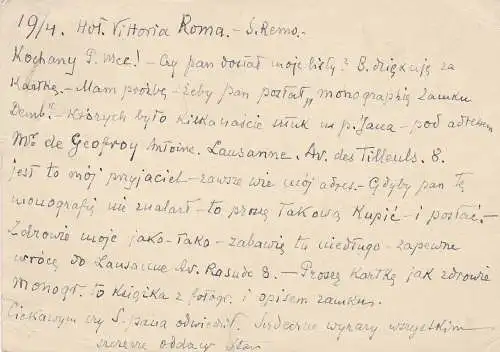 19/4. Hot. Vittoria Roma. - S. Remo. -
Kochany P. Mec! - Czy pan dostał moje listy? B. dziękuję za
Kartkę. - Mam prośbę - żeby pan posłał „monographię zamku
Demb." - których było kilkanaście sztuk u p. Jana - pod adresem
Mr. de Geofroy Antoine. Lausanne. Av. des Tilleuls. 8.
jest to mój przyjaciel - zawsze wie mój adres. - Gdyby pan tę
monografię nie znalazł - to proszę takową kupić - i posłać. -
Zdrowie moje jako-tako - zabawię tu niedługo - zapewne
wrócę do Lausanne Av. Rasude 8. - Proszę kartkę jak zdrowie
Monogr. to książka z fotogr. i opisem zamku.
Ciekawym czy S. pana odwiedził. Serdeczne wyrazy wszystkim
szczerze oddany